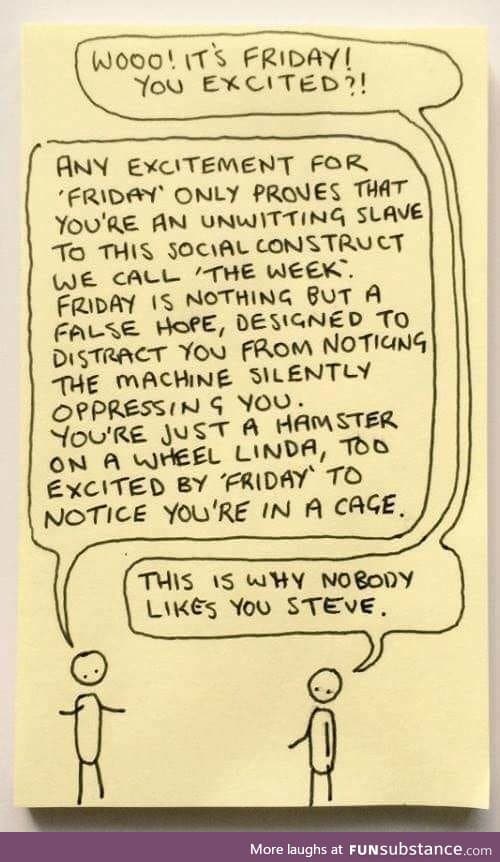 WOOO! IT'S FRIDAY!
YOU EXCITED?!
ANY EXCITEMENT FOR
'FRIDAY' ONLY PROVES THAT
YOU'RE AN UNWITTING SLAVE
TO THIS SOCIAL CONSTRUCT
WE CALL 'THE WEEK'.
FRIDAY IS NOTHING BUT A
FALSE HOPE, DESIGNED TO
DISTRACT YOU FROM NOTICING
THE MACHINE SILENTLY
OPPRESSING YOU.
YOU'RE JUST A HAMSTER
ON A WHEEL LINDA, TOO
EXCITED BY 'FRIDAY' TO
NOTICE YOU'RE IN A CAGE.
THIS IS WHY NOBODY
LIKES YOU STEVE.
More laughs at FUNsubstance.com